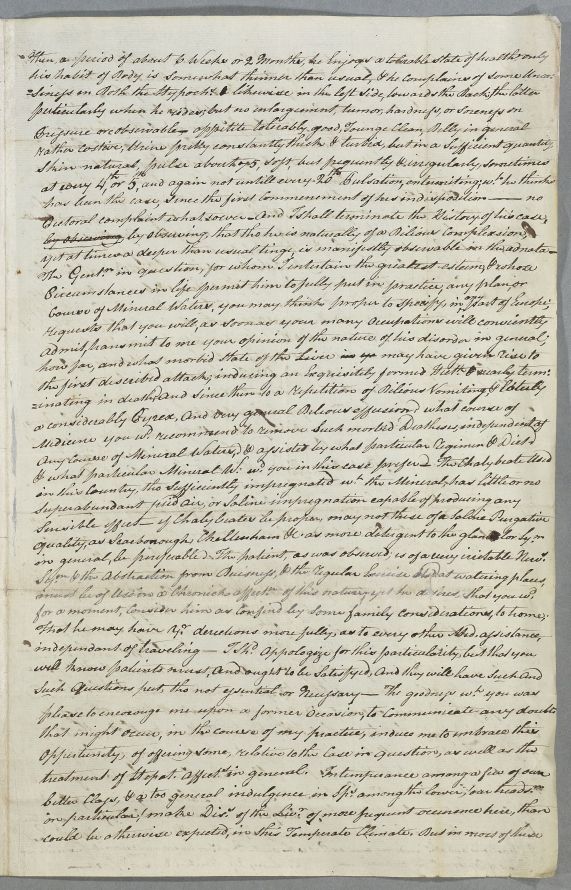 then a period of about 6 Weeks or 2 Months, he Enjoys a tolerable state of health: only
his habit of Body is somewhat thinner than usual, & he complains of some Unea-
siness in Both the Hypochs & likewise in the left side, towards the Back, the latter
particularly when he rides; but no enlargement, tumor, hardness, or soreness on
Pressure are observable – appetite tolerably good, Tounge Clean, Belly in general
rather costive, Urine pretty constantly thick & turbid, but in a Sufficient quantity,
Skin natural, pulse about 65, soft, but frequently & irregularly, sometimes
at every 4th or 5th, and again not untill every 20th Pulsation, intermitting, wh he thinks
has been the case since the first commencement of his indisposition — no
Pectoral complaint whatsoever – And I shall terminate the History of his case,
by observing by observing, that tho he is naturally of a Bilious Complexion,
yet at times a deeper than usual tinge, is manifestly observable in the adnata –
The Gentn in question, for whom I entertain the greatest esteem, & whose
Circumstances in life permit him to fully put in practice, any plan, or
Course of Mineral Waters, you may think proper to specify, in any Part of Europe,
requests that you will, as soon as your many Ocupations will conveniently
admit, transmit to me your opinion of the nature of his disorder in general;
how far, and what morbid State of the Liver may have given rise to
the first described attack, inducing an Exquisitely formed & nearly term-
inating in death, and since then to a repetition of Bileous Vomiting, & latterly
a considerably Pyrexa, And very general Bileous effusion; what course of
Medicine you wd recommend to remove such morbid Diathesis, independent of
Any Course of Mineral Waters, & assisted by what particular Regimen & Diet
& what particular Mineral Wr wd you in this case prefer – The Chalybeate Used
in this Country, tho sufficiently impregnated wt the Mineral, has little or no
Superabundant fixd Air, or Saline impregnation capable of producing any
Sensible effect – if Chalybeates be proper, may not those of a Saline Purgative
quality, as Scarborough Cheltenham &c as more detergent to the glandular system
in general, be preferable – The patient, as was observed, is of a very irritable Nervs
System & the Abstraction from Buisness, & the regular Exercise Used at watering places,
must be of Use in a Chronick affectn of this nature, yet he desires, that you wd
for a moment, Consider him as confined by some family considerations, to home;
that he may have yr derections more fully, as to every other Med. assistance,
independant of traveling — I shd Appologize for this particularity, but that you
well know patients must, And ought to be Satisfyed, And they will have Such And
Such Questions put, tho not essential or Necessary — The goodness wh you was
please to encourage me upon a former Occasion, to Communicate any doubts
that might occur, in the course of my practice, induce me to embrace this
Opportunity, of offering some, relative to the Case in question, as well as the
treatment of Hepat. Affectns in general. Intemperance among a few of our
better Class, & a too general indulgence in Spts among the lower,
in particular, make Diss of the Livr of more frequent occurence here, than
could be otherwise expected, in this Temperate Climate. But in most of these